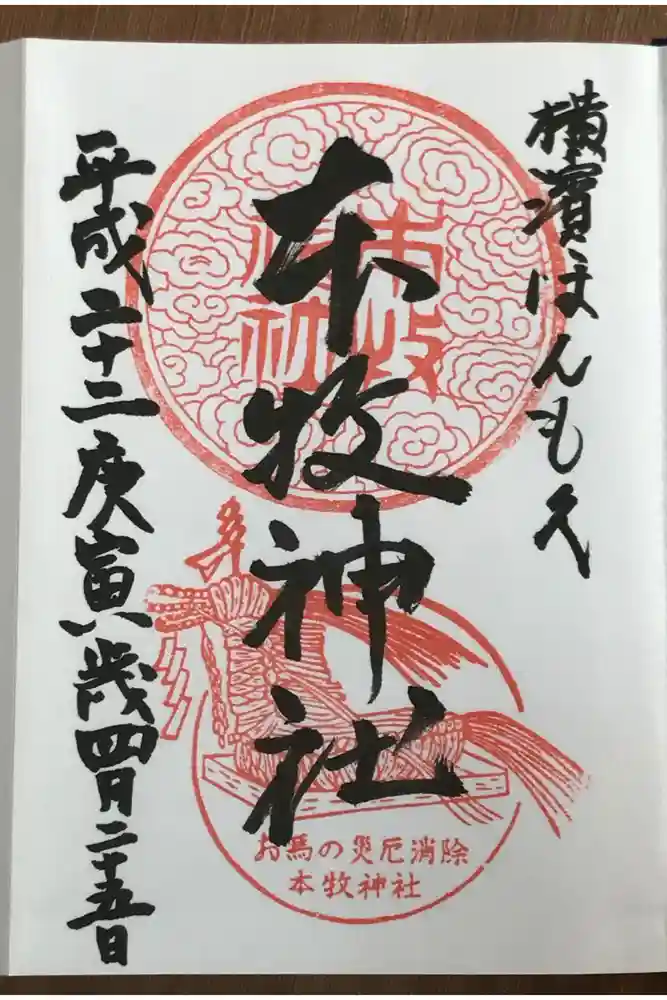 横濱ほんもく
本牧神社
平成二十二庚寅歳四月二十五日
本牧
神社
奉
お馬の災厄消除
本牧神社